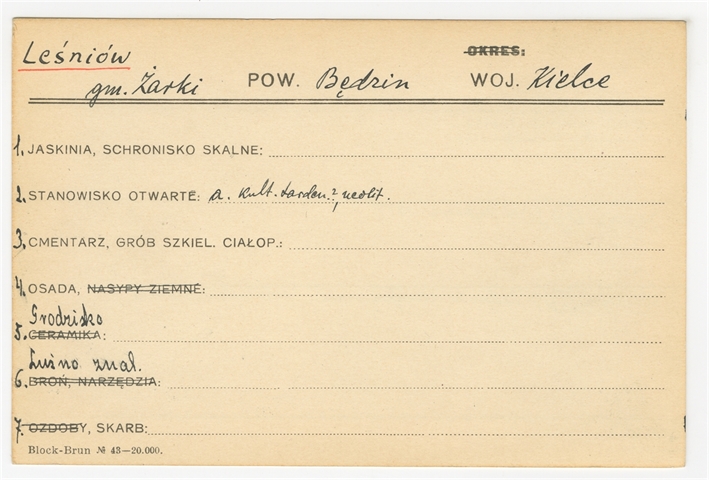 Leśniów OKRES:
gm. Żarki POW. Będzin WOJ. Kielce
1. JASKINIA, SCHRONISKO SKALNE:
2. STANOWISKO OTWARTE: a. kult. tarden.?, neolit.
3. CMENTARZ, GRÓB SZKIEL. CIAŁOP.:
4. OSADA, NASYPY ZIEMNE:
Grodzisko
5. CERAMIKA:
Luźno znal.
6. BROŃ, NARZĘDZIA:
7. OZDOBY, SKARB:
Block-Brun № 43—20.000.